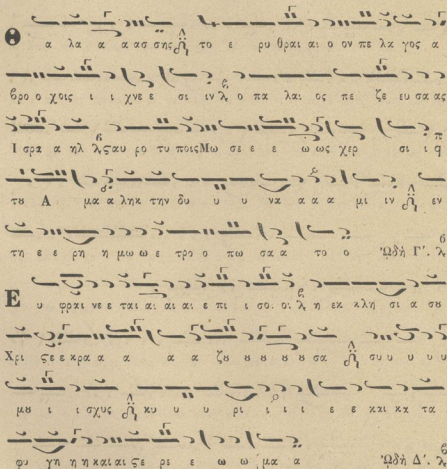 Θ α λα α α ασ σης το ε ρυ θραι αι ο ον πε λα γος α
βρο ο χοις ι ι χνε ε σι ιν ο πα λαι ος πε ζε ευ σα ας
Ι σρα α ηλ ςαυ ρο τυ ποις Μω σε ε ε ω ως χερ σι ι
τȣ Α μα α ληκ την δυ υ υ να α α α μι ιν εν
τη ε ε ρη η μω ω ε τρο ο πω σα α το ο Ὠδὴ Γ΄.
Ε υ φραι νε ε ται αι αι αι ε πι ι σο. οι. η εκ κλη σι α σȣ
Χρι ςε ε κρα α α α α ζȣ ȣ ȣ ȣ ȣ σα συ υ υ υ υ
μȣ ι ι σχυς κυ υ υ ρι ι ι ι ε ε και κα τα
φυ γη η η και αι ςε ρε ε ω ω μα α Ὠδὴ Δ΄.